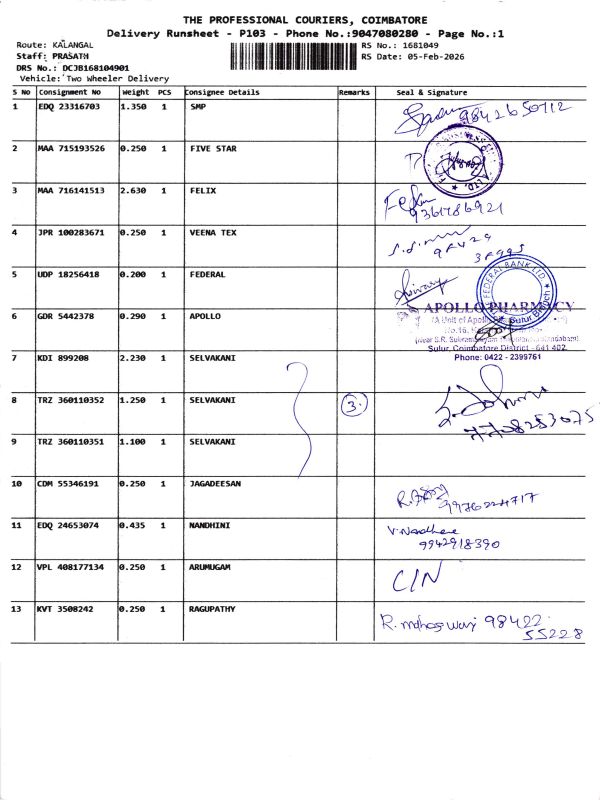 THE PROFESSIONAL COURIERS, COIMBATORE
Delivery Runsheet - P103 - Phone No.:9047080280 - Page No.:1
Route: KALANGAL
RS No.: 1681049
Staff: PRASATH
RS Date: 05-Feb-2026
DRS No.: DCJB168104901
Vehicle: Two Wheeler Delivery
S No Consignment No Weight PCS Consignee Details Remarks Seal & Signature
1 EDQ 23316703 1.350 1 SMP 9842650712
2 MAA 715193526 0.250 1 FIVE STAR
3 MAA 716141513 2.630 1 FELIX Felix
9361786921
4 JPR 100283671 0.250 1 VEENA TEX
5 UDP 18256418 0.200 1 FEDERAL
FEDERAL BANK LTD.
Sulur Branch
6 GDR 5442378 0.290 1 APOLLO APOLLO PHARMACY
(A Unit of Apollo
No.16,
(Near S.R.
Sulur, Coimbatore District - 641 402.
Phone: 0422 - 2399761
7 KDI 899208 2.230 1 SELVAKANI
8 TRZ 360110352 1.250 1 SELVAKANI 3
9 TRZ 360110351 1.100 1 SELVAKANI
10 CDM 55346191 0.250 1 JAGADEESAN
9976224717
11 EDQ 24653074 0.435 1 NANDHINI V. Nandhini
9942918390
12 VPL 408177134 0.250 1 ARUMUGAM C/N
13 KVT 3508242 0.250 1 RAGUPATHY R. maheswari 98422
55228